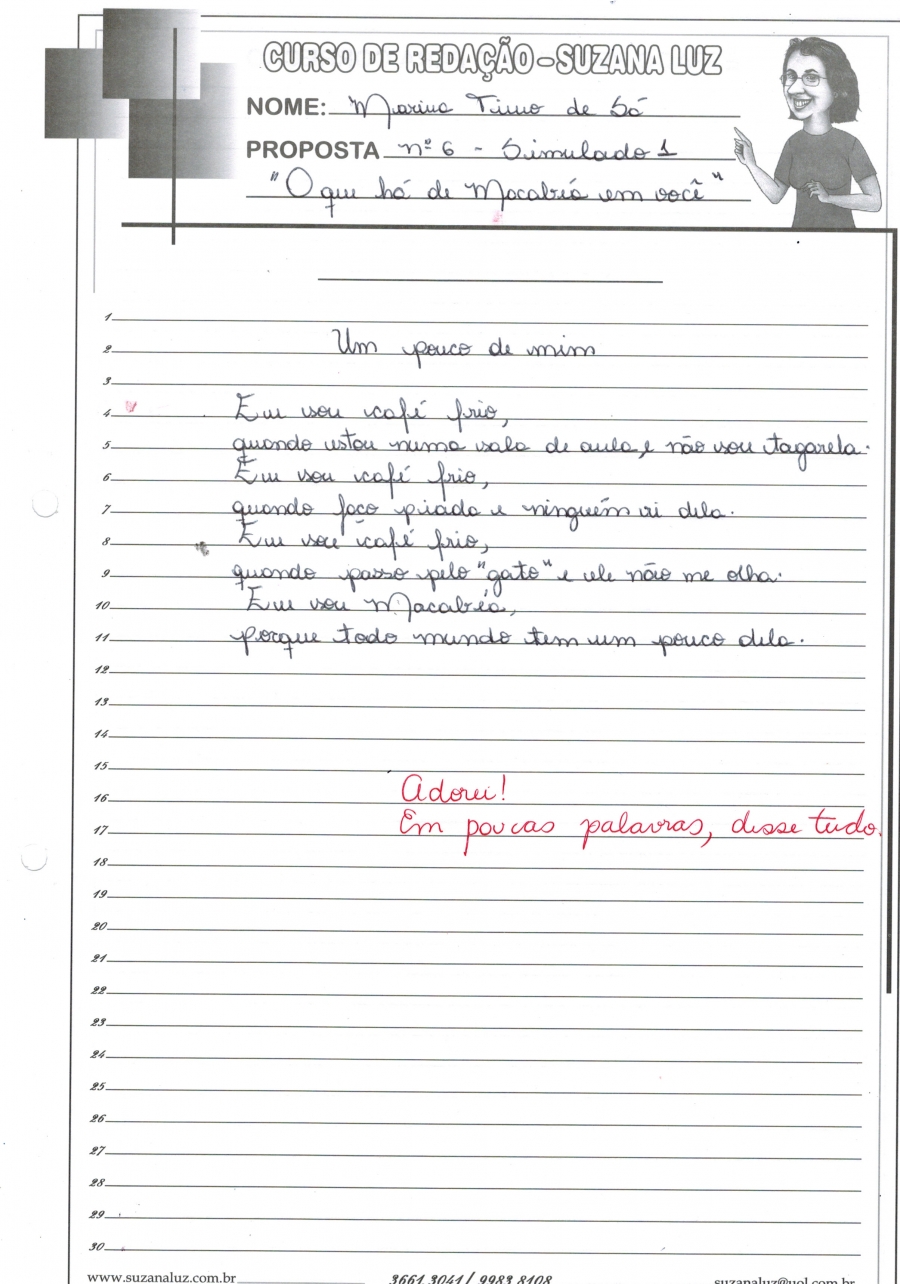 CURSO DE REDAÇÃO - SUZANA LUZ
NOME: Marina Timo de Sá
PROPOSTA nº 6 - Simulado 1
"O que há de Macabéa em você"
1
2 Um pouco de mim
3
4 Eu sou café frio,
5 quando estou numa sala de aula, e não sou tagarela.
6 Eu sou café frio,
7 quando faço piada e ninguém ri dela.
8 Eu sou café frio,
9 quando passo pelo "gato" e ele não me olha.
10 Eu sou Macabéa,
11 porque todo mundo tem um pouco dela.
12
13
14
15
16 Adorei!
17 Em poucas palavras, disse tudo.
18
19
20
21
22
23
24
25
26
27
28
29
30
www.suzanaluz.com.br 3661.3041 / 9983.8108 suzanaluz@uol.com.br